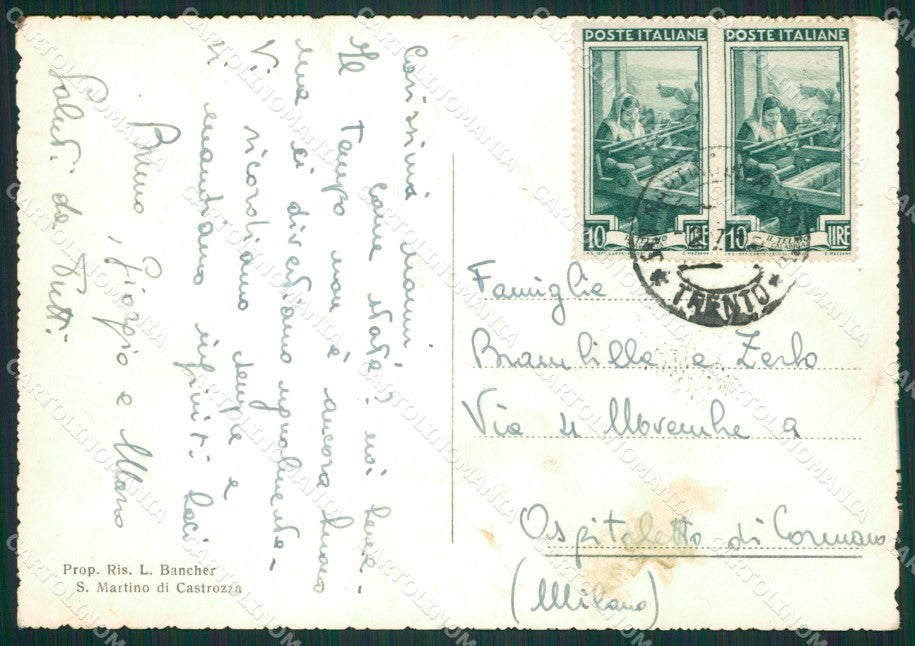 Carissimi nonni,
come state? noi bene.
Il tempo non è ancora buono
ma ci divertiamo ugualmente.
Vi ricordiamo sempre e
Vi mandiamo infiniti baci
Bruno, Giorgio e
Saluti da tutti.
Prop. Ris. L. Bancher
S. Martino di Castrozza
POSTE ITALIANE
10 IL TELAIO LIRE
POSTE ITALIANE
10 IL TELAIO LIRE
TRENTO
Famiglie
Brambilla e Zerbo
Via 4 Novembre 9
Ospitaletto di Cormano
(Milano)
CARTOLINOMANIA